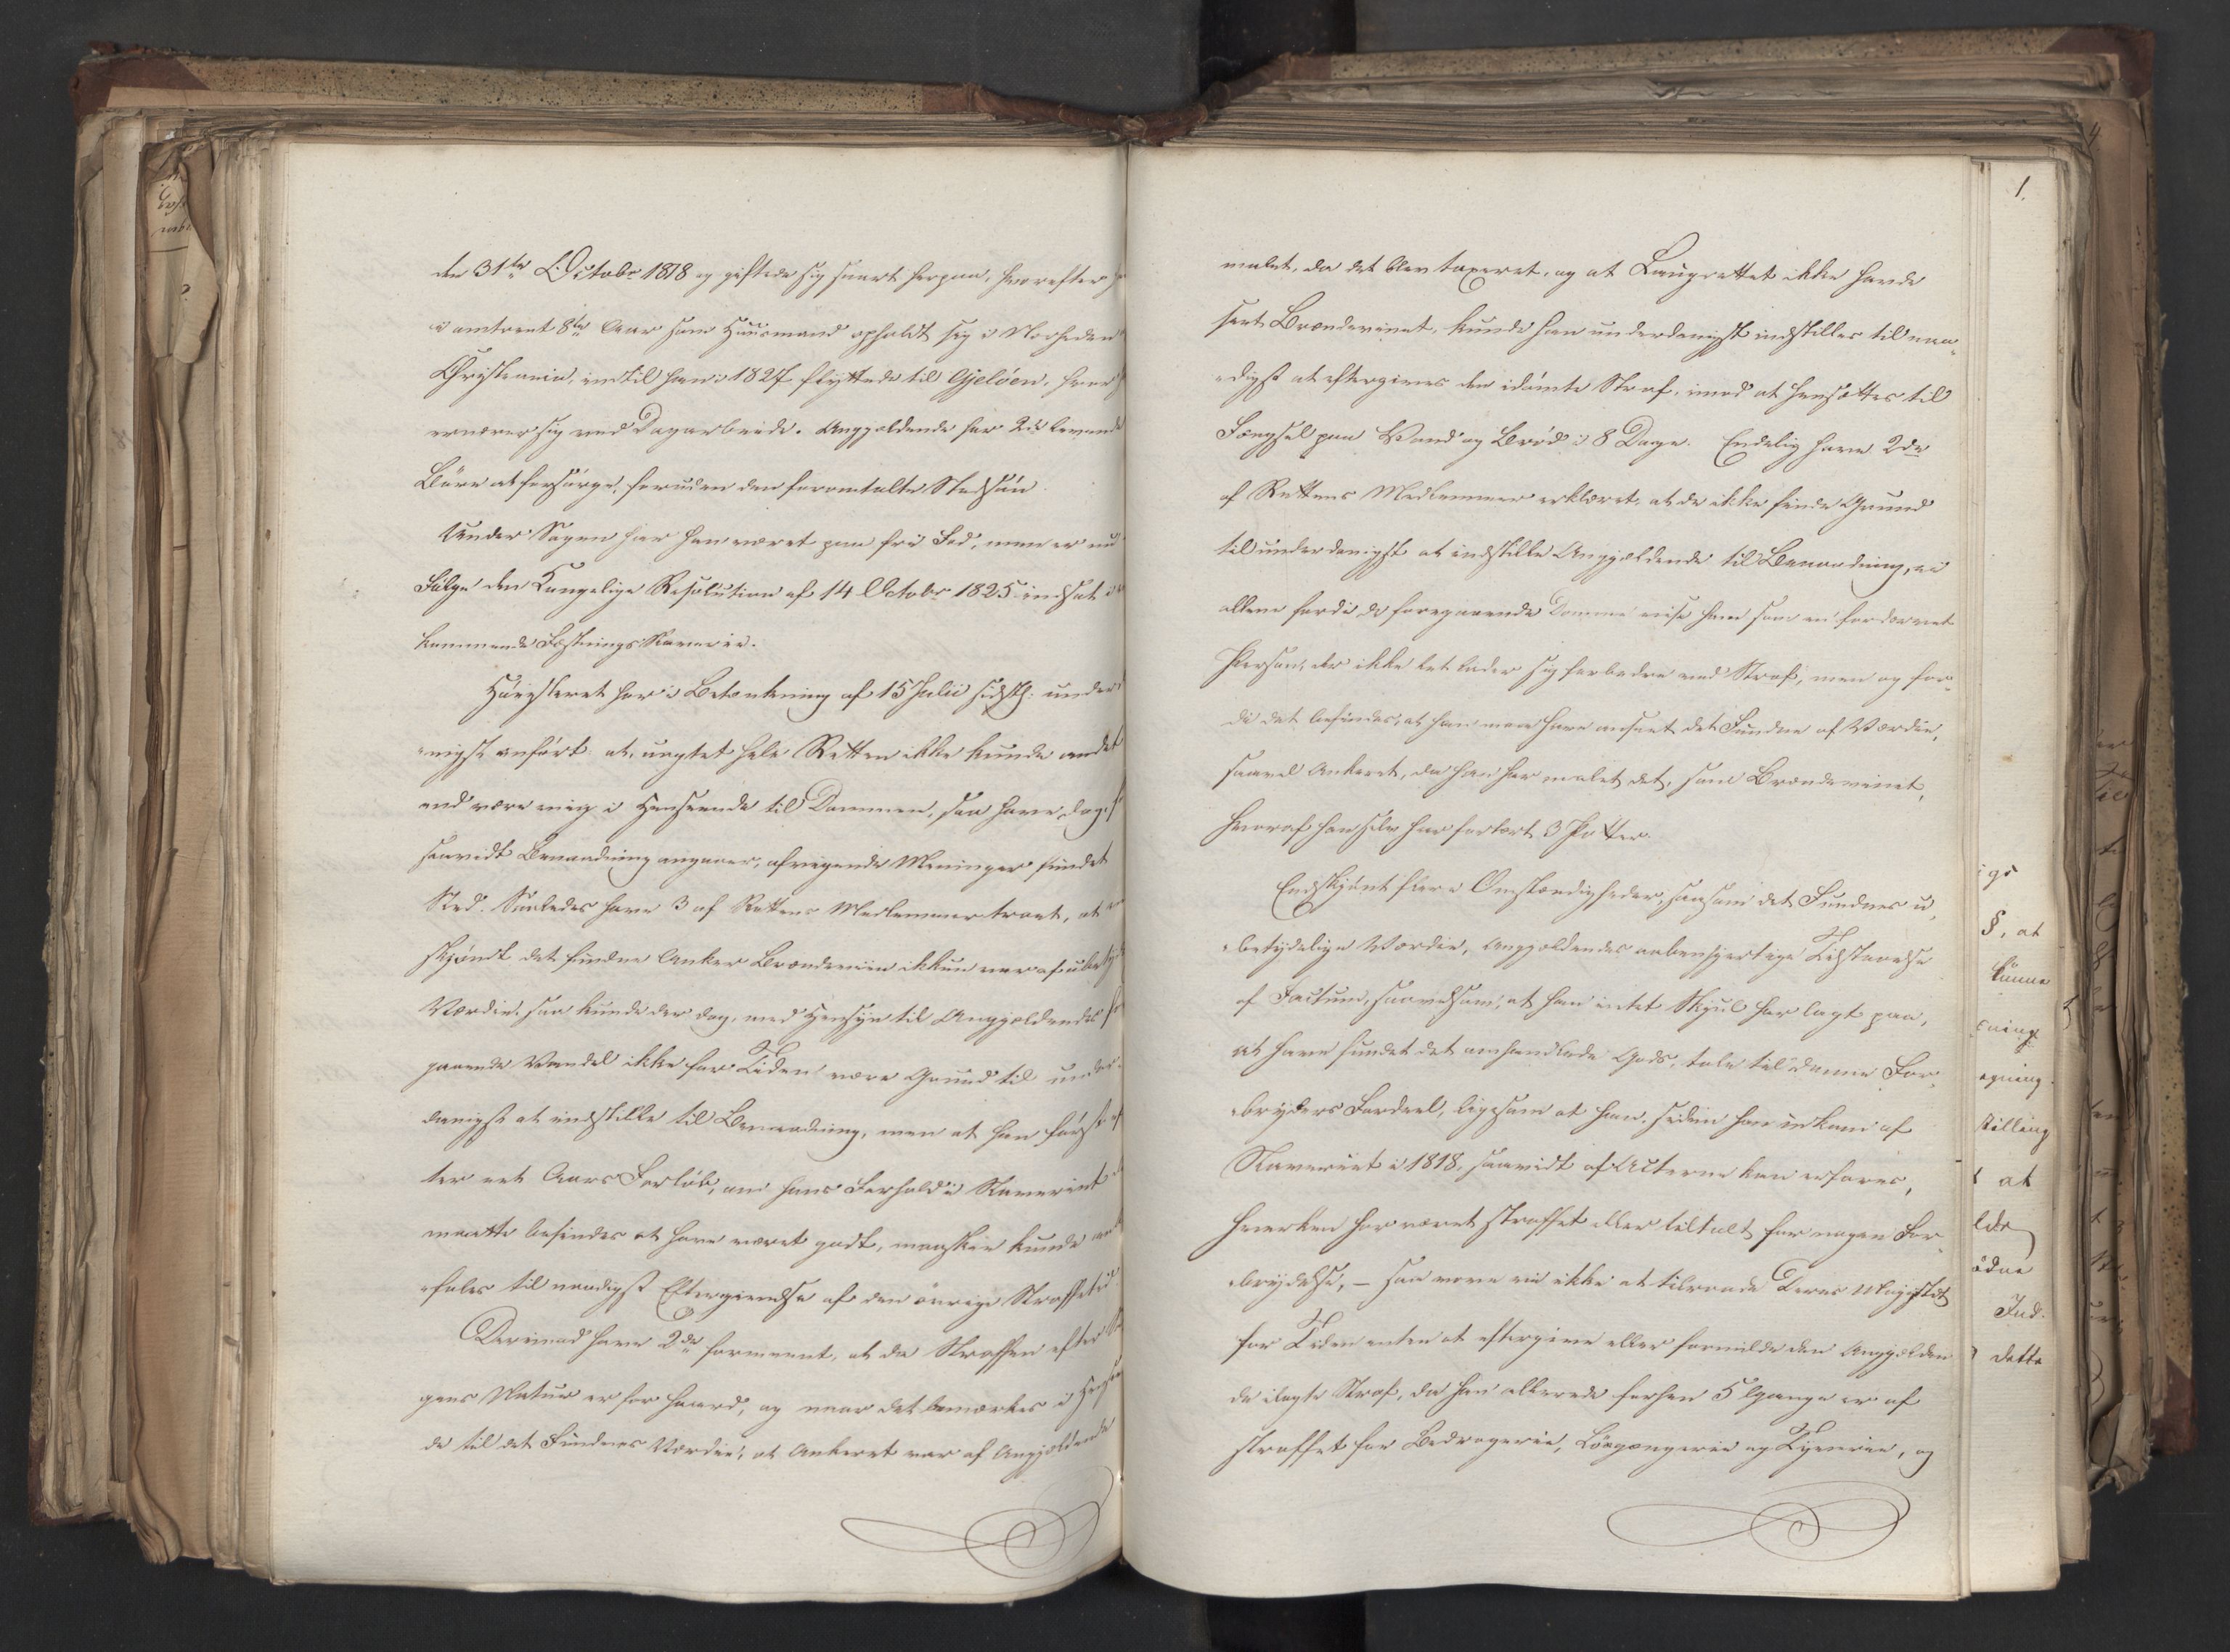 den 31te Octobr 1818 og giftede sig snart herpaa, hvorefter
i omtrent 8te Aar som Huusmand opholdt sig i Nærheden
Christiania, indtil han i 1827 flyttede til Gjelöen, hvor
ernærer sig ved Dagarbeide. Angjældende har 2de levende
Börn at forsörge, foruden den foromtalte Stedsön
Under Sagen har han været paa fri Fod, men er nu
Fölge den Kongelige Resolution af 14 Octobr 1825 indsat i
kommende Fæstnings Slaverie.
Höiesteret har i Betænkning af 15 Julii sidstl: under
-nigst anfört: at, uagtet hele Retten ikke kunde andet
end være enig i Henseende til Dommen, saa have dog,
saavidt Benaadning angaaer, afvigende Meninger fundet
Sted. Saaledes have 3 af Rettens Medlemmer troet, at
skjöndt det fundne Anker Brændeviin ikkun var af ubety
Værdie, saa kunde der dog, med Hensyn til Angjældendes
gaaende Vandel ikke for Tiden være Grund til under-
danigst at indstille til Benaadning, men at han först ef
ter eet Aars Forlöb, om hans Forhold i Slaveriet
maatte befindes at have været godt, maaskee kunde an
-fales til naadigst Eftergivelse af den övrige Straffetid
Derimod have 2de formeent, at da Straffen efter
gens Natur er for haard, og naar det bemærkes i Hensee
de til det Fundnes Værdie, at Ankeret var af Angjældende
malet, da det blev taxeret, og at Laugrettet ikke havde
seet Brændevinet, kunde han underdanigst indstilles til naa-
-digst at eftergives den idömte Straf, imod at hensættes til
Fængsel paa Vand og Bröd i 8 Dage. Endelig have 2de
af Rettens Medlemmer erklæret, at de ikke finde Grund
til underdanigst at indstille Angjældende til Benaadning, ei
allene fordi de foregaaende Domme viise ham som en fordærvet
Person, der ikke let lader sig forbedre ved Straf, men og for-
di det befindes, at han maa have anseet det Fundne af Værdie,
saavel Ankeret, da han har malet det, som Brændevinet,
hvoraf han selv har fortært 3 Potter.
Endskjönt flere Omstændigheder, saasom det Fundnes u-
-betydelige Værdie, Angjældendes aabenhjertige Tilstaaelse
af Factum, saavelsom, at han intet Skjul har lagt paa,
at have fundet det omhandlede Gods, tale til denne For-
-bryders Fordeel, ligesom at han, siden han udkom af
Slaveriet i 1818, saavidt af Acterne kan erfares,
hverken har været straffet eller tiltalt for nogen For-
-brydelse, – saa vove vi ikke at tilraade Deres Majestæt
for Tiden enten at eftergive eller formilde den Angjælden
de ilagte Straf, da han allerede forhen 5 Gange er af
straffet for Bedragerie, Lösgængerie og Tyverie, og
1.
igs
§, at
kunne
ening
egning
stilling
t at
lde
ödne
Ind.
dette